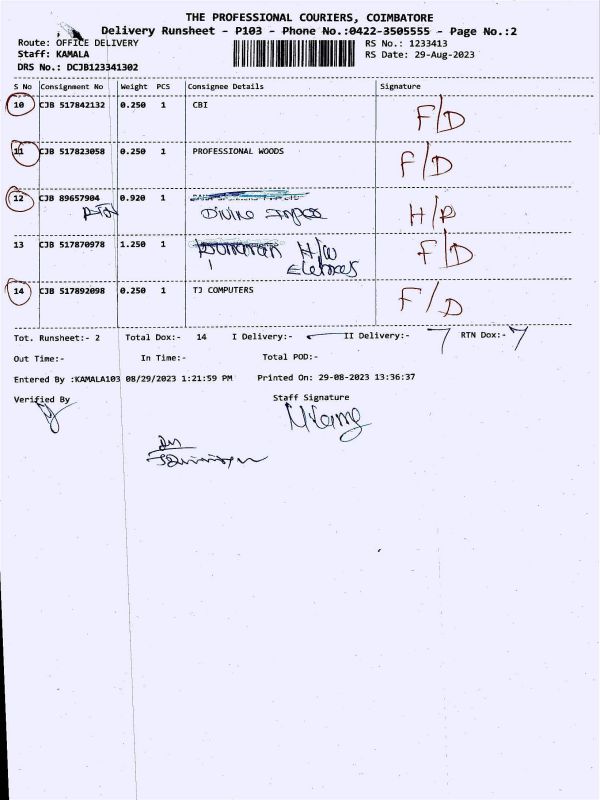 THE PROFESSIONAL COURIERS, COIMBATORE
Delivery Runsheet - P103 - Phone No.:0422-3505555 - Page No.:2
Route: OFFICE DELIVERY RS No.: 1233413
Staff: KAMALA RS Date: 29-Aug-2023
DRS No.: DCJB123341302
S No Consignment No Weight PCS Consignee Details Signature
10 CJB 517842132 0.250 1 CBI F/D
11 CJB 517823058 0.250 1 PROFESSIONAL WOODS F/D
12 CJB 89657904 0.920 1 H/P
Divine
13 CJB 517870978 1.250 1 H/W F/D
14 CJB 517892098 0.250 1 TJ COMPUTERS F/D
Tot. Runsheet:- 2 Total Dox:- 14 I Delivery:- II Delivery:- 7 RTN Dox:- 7
Out Time:- In Time:- Total POD:-
Entered By :KAMALA103 08/29/2023 1:21:59 PM Printed On: 29-08-2023 13:36:37
Verified By Staff Signature